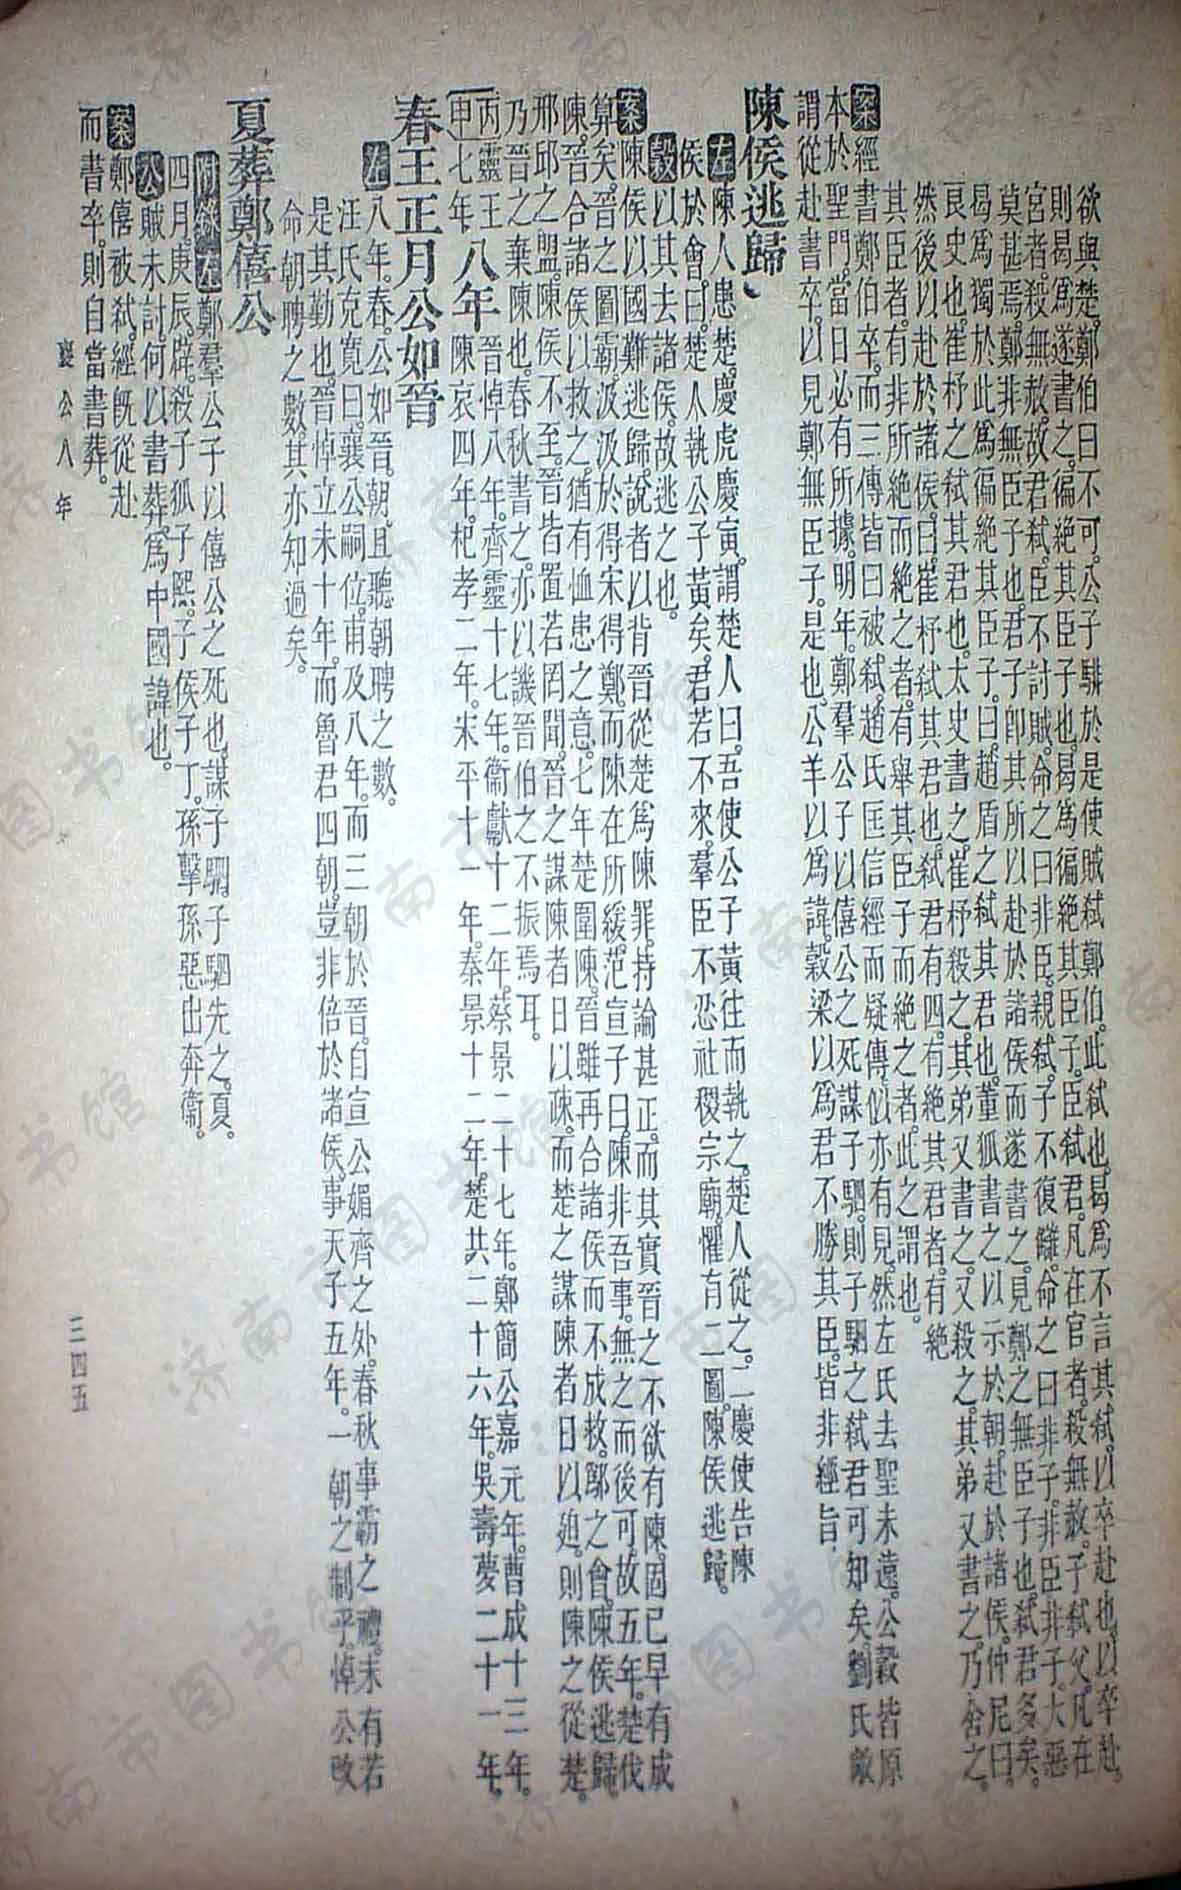 欲與楚鄭伯曰不可公子騑於是使賊弒鄭伯此弒也曷爲不言其弒以卒赴也以卒赴
則曷爲遂書之徧絕其臣子也曷爲徧絕其臣子臣弒君凡在官者殺無赦子弒父凡在
宮者殺無赦故君弒臣不討賊命之曰非臣親弒子不復讎命之曰非子非臣非子大惡
莫甚焉鄭非無臣子也君子卽其所以赴於諸侯而遂書之見鄭之無臣子也弒君多矣
曷爲獨於此爲徧絕其臣子曰趙盾之弒其君也董狐書之以示於朝赴於諸侯仲尼曰
良史也崔杼之弒其君也太史書之崔杼殺之其弟又書之又殺之其弟又書之乃舍之
然後以赴於諸侯曰崔杼弒其君也弒君有四有絕其君者有絕
其臣者有非所絕而絕之者有舉其臣子而絕之者此之謂也
案經書鄭伯卒而三傳皆曰被弒趙氏匡信經而疑傳似亦有見然左氏去聖未遠公穀皆原
本於聖門當日必有所據明年鄭羣公子以僖公之死謀子駟則子駟之弒君可知矣劉氏敞
謂從赴書卒以見鄭無臣子是也公羊以爲諱穀梁以爲君不勝其臣皆非經旨
陳侯逃歸
左陳人患楚慶虎慶寅謂楚人曰吾使公子黃往而執之楚人從之二慶使告陳
侯於會曰楚人執公子黃矣君若不來羣臣不忍社稷宗廟懼有二圖陳侯逃歸
穀以其去諸侯故逃之也
案陳侯以國難逃歸說者以背晉從楚爲陳罪持論甚正而其實晉之不欲有陳固已早有成
算矣晉之圖霸汲汲於得宋得鄭而陳在所緩范宣子曰陳非吾事無之而後可故五年楚伐
陳晉合諸侯以救之猶有恤患之意七年楚圍陳晉雖再合諸侯而不成救鄬之會陳侯逃歸
邢邱之盟陳侯不至晉皆置若罔聞晉之謀陳者日以疎而楚之謀陳者日以廹則陳之從楚
乃晉之棄陳也春秋書之亦以譏晉伯之不振焉耳
丙申靈王七年八年晉悼八年齊靈十七年衞獻十二年蔡景二十七年鄭簡公嘉元年曹成十三年
陳哀四年杞孝二年宋平十一年秦景十二年楚共二十六年吳壽夢二十一年
春王正月公如晉
左八年春公如晉朝且聽朝聘之數
汪氏克寬曰襄公嗣位甫及八年而三朝於晉自宣公媚齊之外春秋事霸之禮未有若
是其勤也晉悼立未十年而魯君四朝豈非倍於諸侯事天子五年一朝之制乎悼公改
命朝聘之數其亦知過矣
夏葬鄭僖公
附錄左鄭羣公子以僖公之死也謀子駟子駟先之夏
四月庚辰辟殺子狐子熙子侯子丁孫擊孫惡出奔衞
公賊未討何以書葬爲中國諱也
案鄭僖被弒經旣從赴
而書卒則自當書葬
襄公八年
三四五